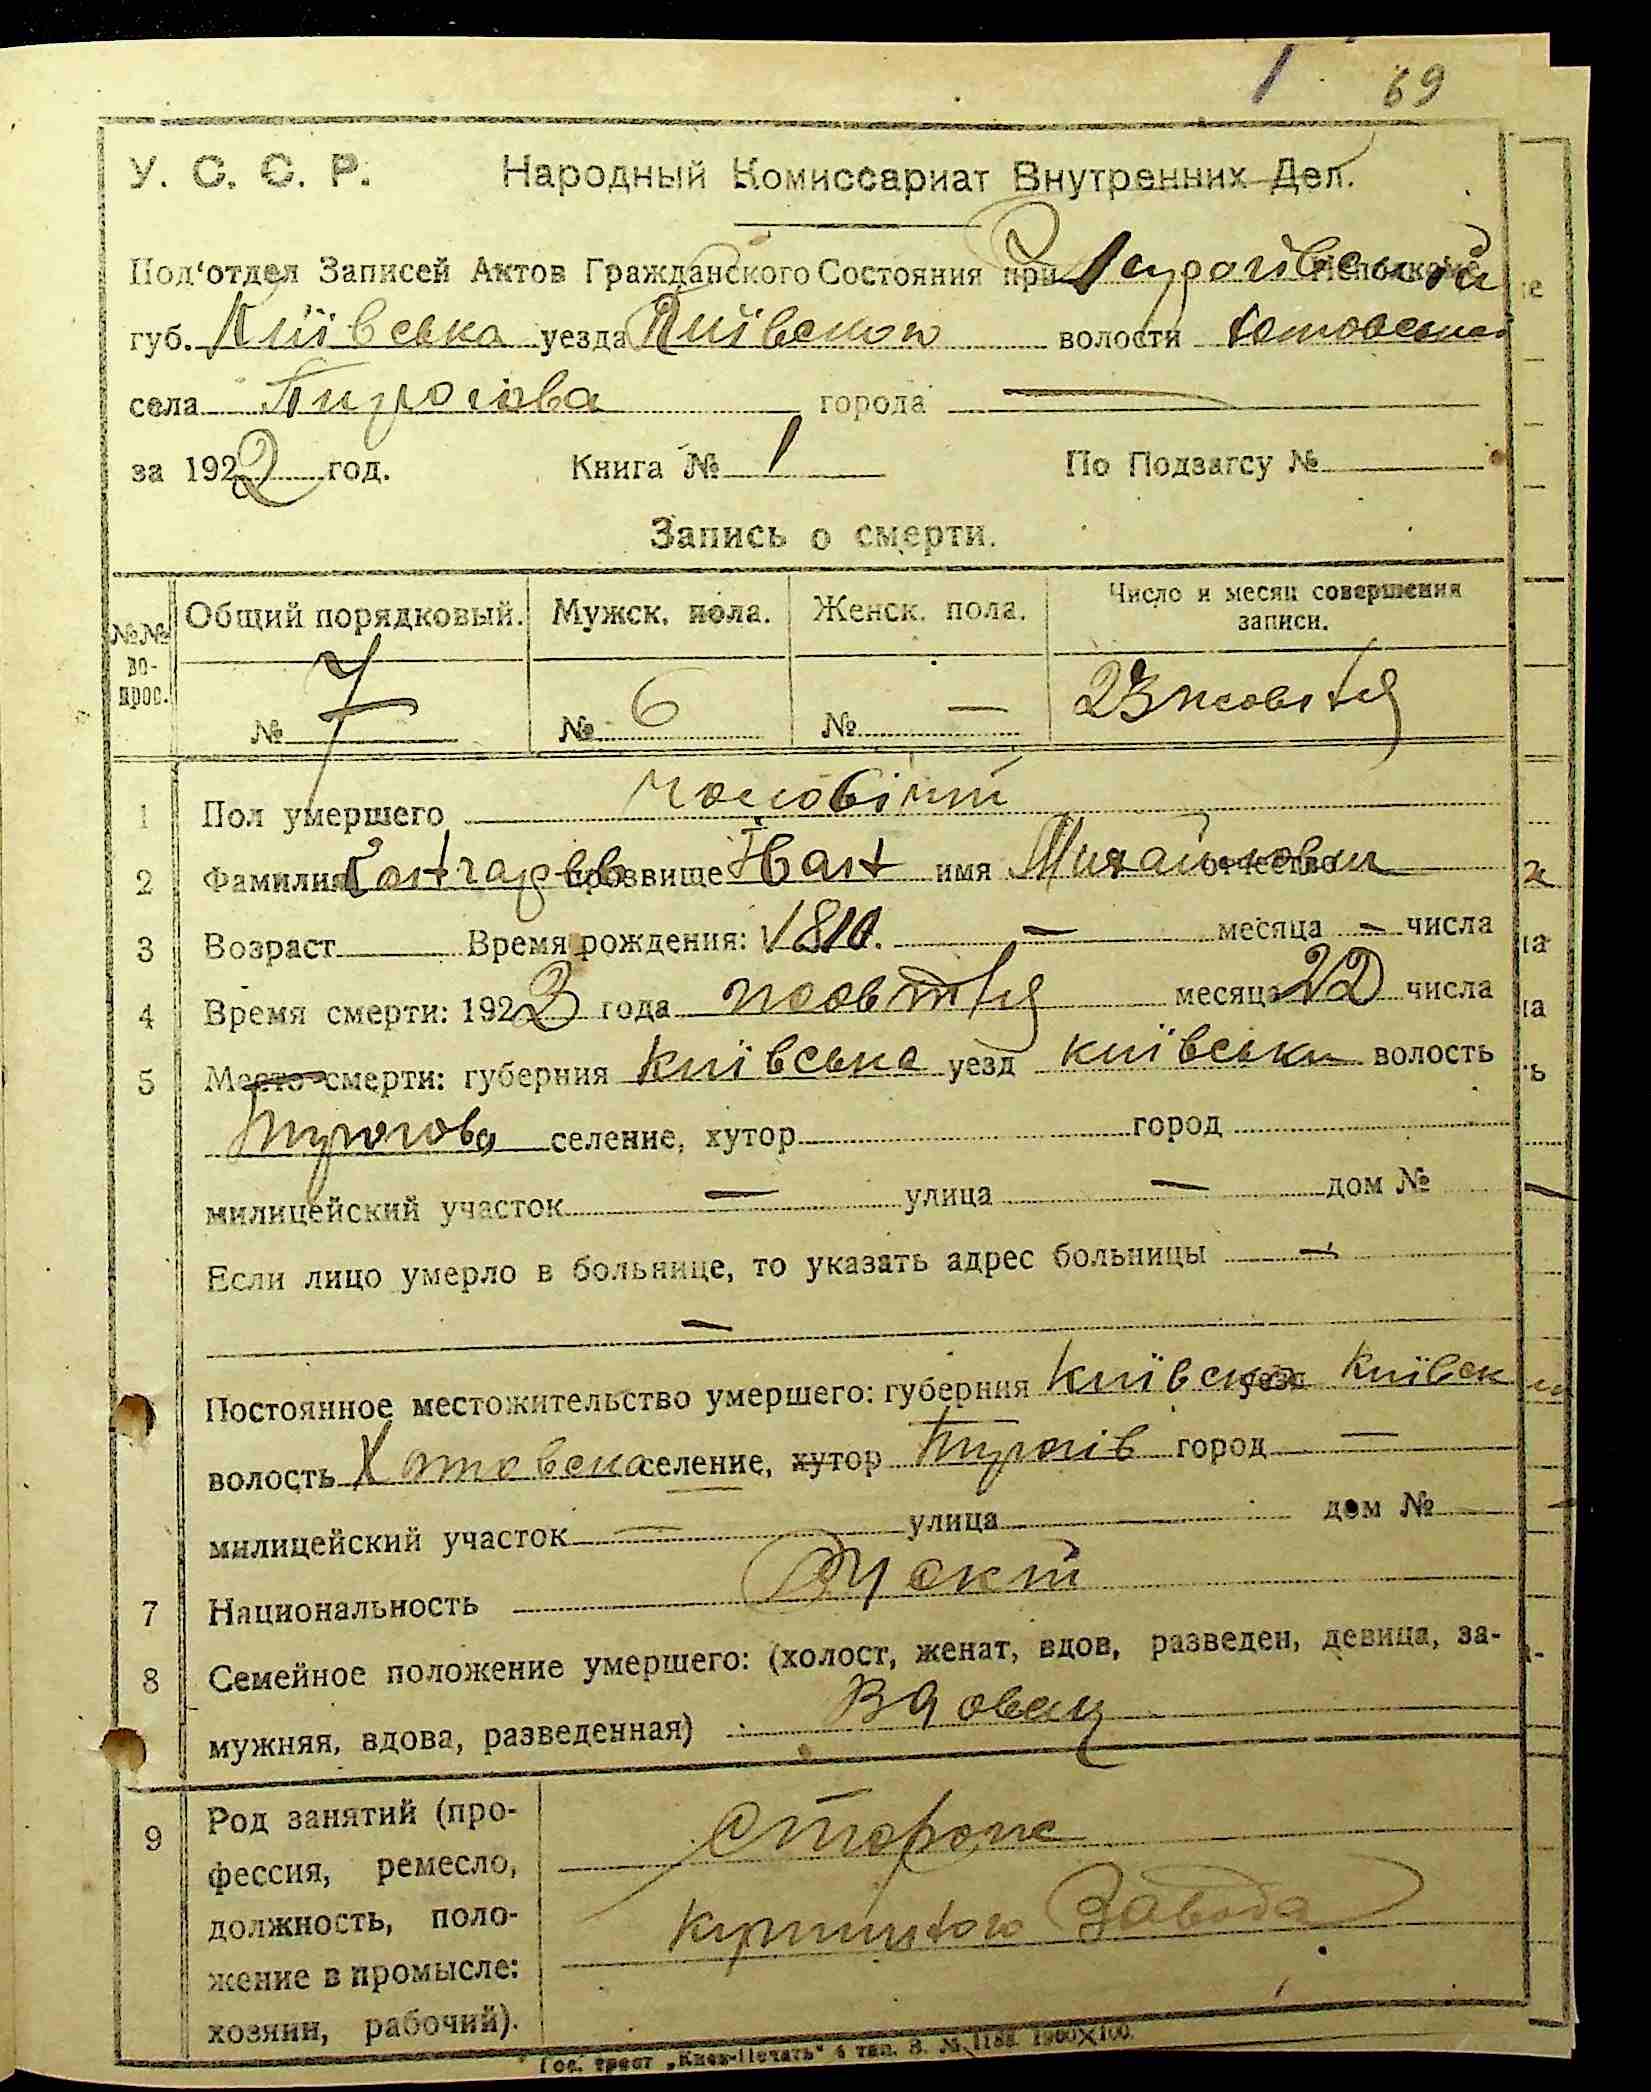 1 69
У. С. С. Р. Народный Комиссариат Внутренних Дел.
Под'отдел Записей Актов Гражданского Состояния при Пирогівський
губ. Київська уезда Київского волости Хотовська
села Пирогова города —
за 1922 год. Книга № 1 По Подзагсу №
Запись о смерти.
№№ во-прос. Общий порядковый. Мужск. пола. Женск. пола. Число и месяц совершения записи.
№ 7 № 6 № — 23 жовтня
1 Пол умершего чоловічий
2 Фамилия прозвище Іван имя Михайлович отчество
3 Возраст Время рождения: — месяца — числа
4 Время смерти: 1923 года жовтня месяца 22 числа
5 Место смерти: губерния Київська уезд київськи волость
Пирогово селение, хутор город
милицейский участок — улица — дом №
Если лицо умерло в больнице, то указать адрес больницы —
—
Постоянное местожительство умершего: губерния Київска уезд Київск
волость Хотовска селение, хутор Пирогів город —
милицейский участок — улица — дом №
7 Национальность Руский
8 Семейное положение умершего: (холост, женат, вдов, разведен, девица, за-
мужняя, вдова, разведенная) Вдовец
9 Род занятий (про-
фессия, ремесло, Сторож
должность, поло- Кирпичного Завода
жение в промысле:
хозяин, рабочий).
Гос. трест „Киев-Печать" 6 тип. З. № 1188. 1900×100.